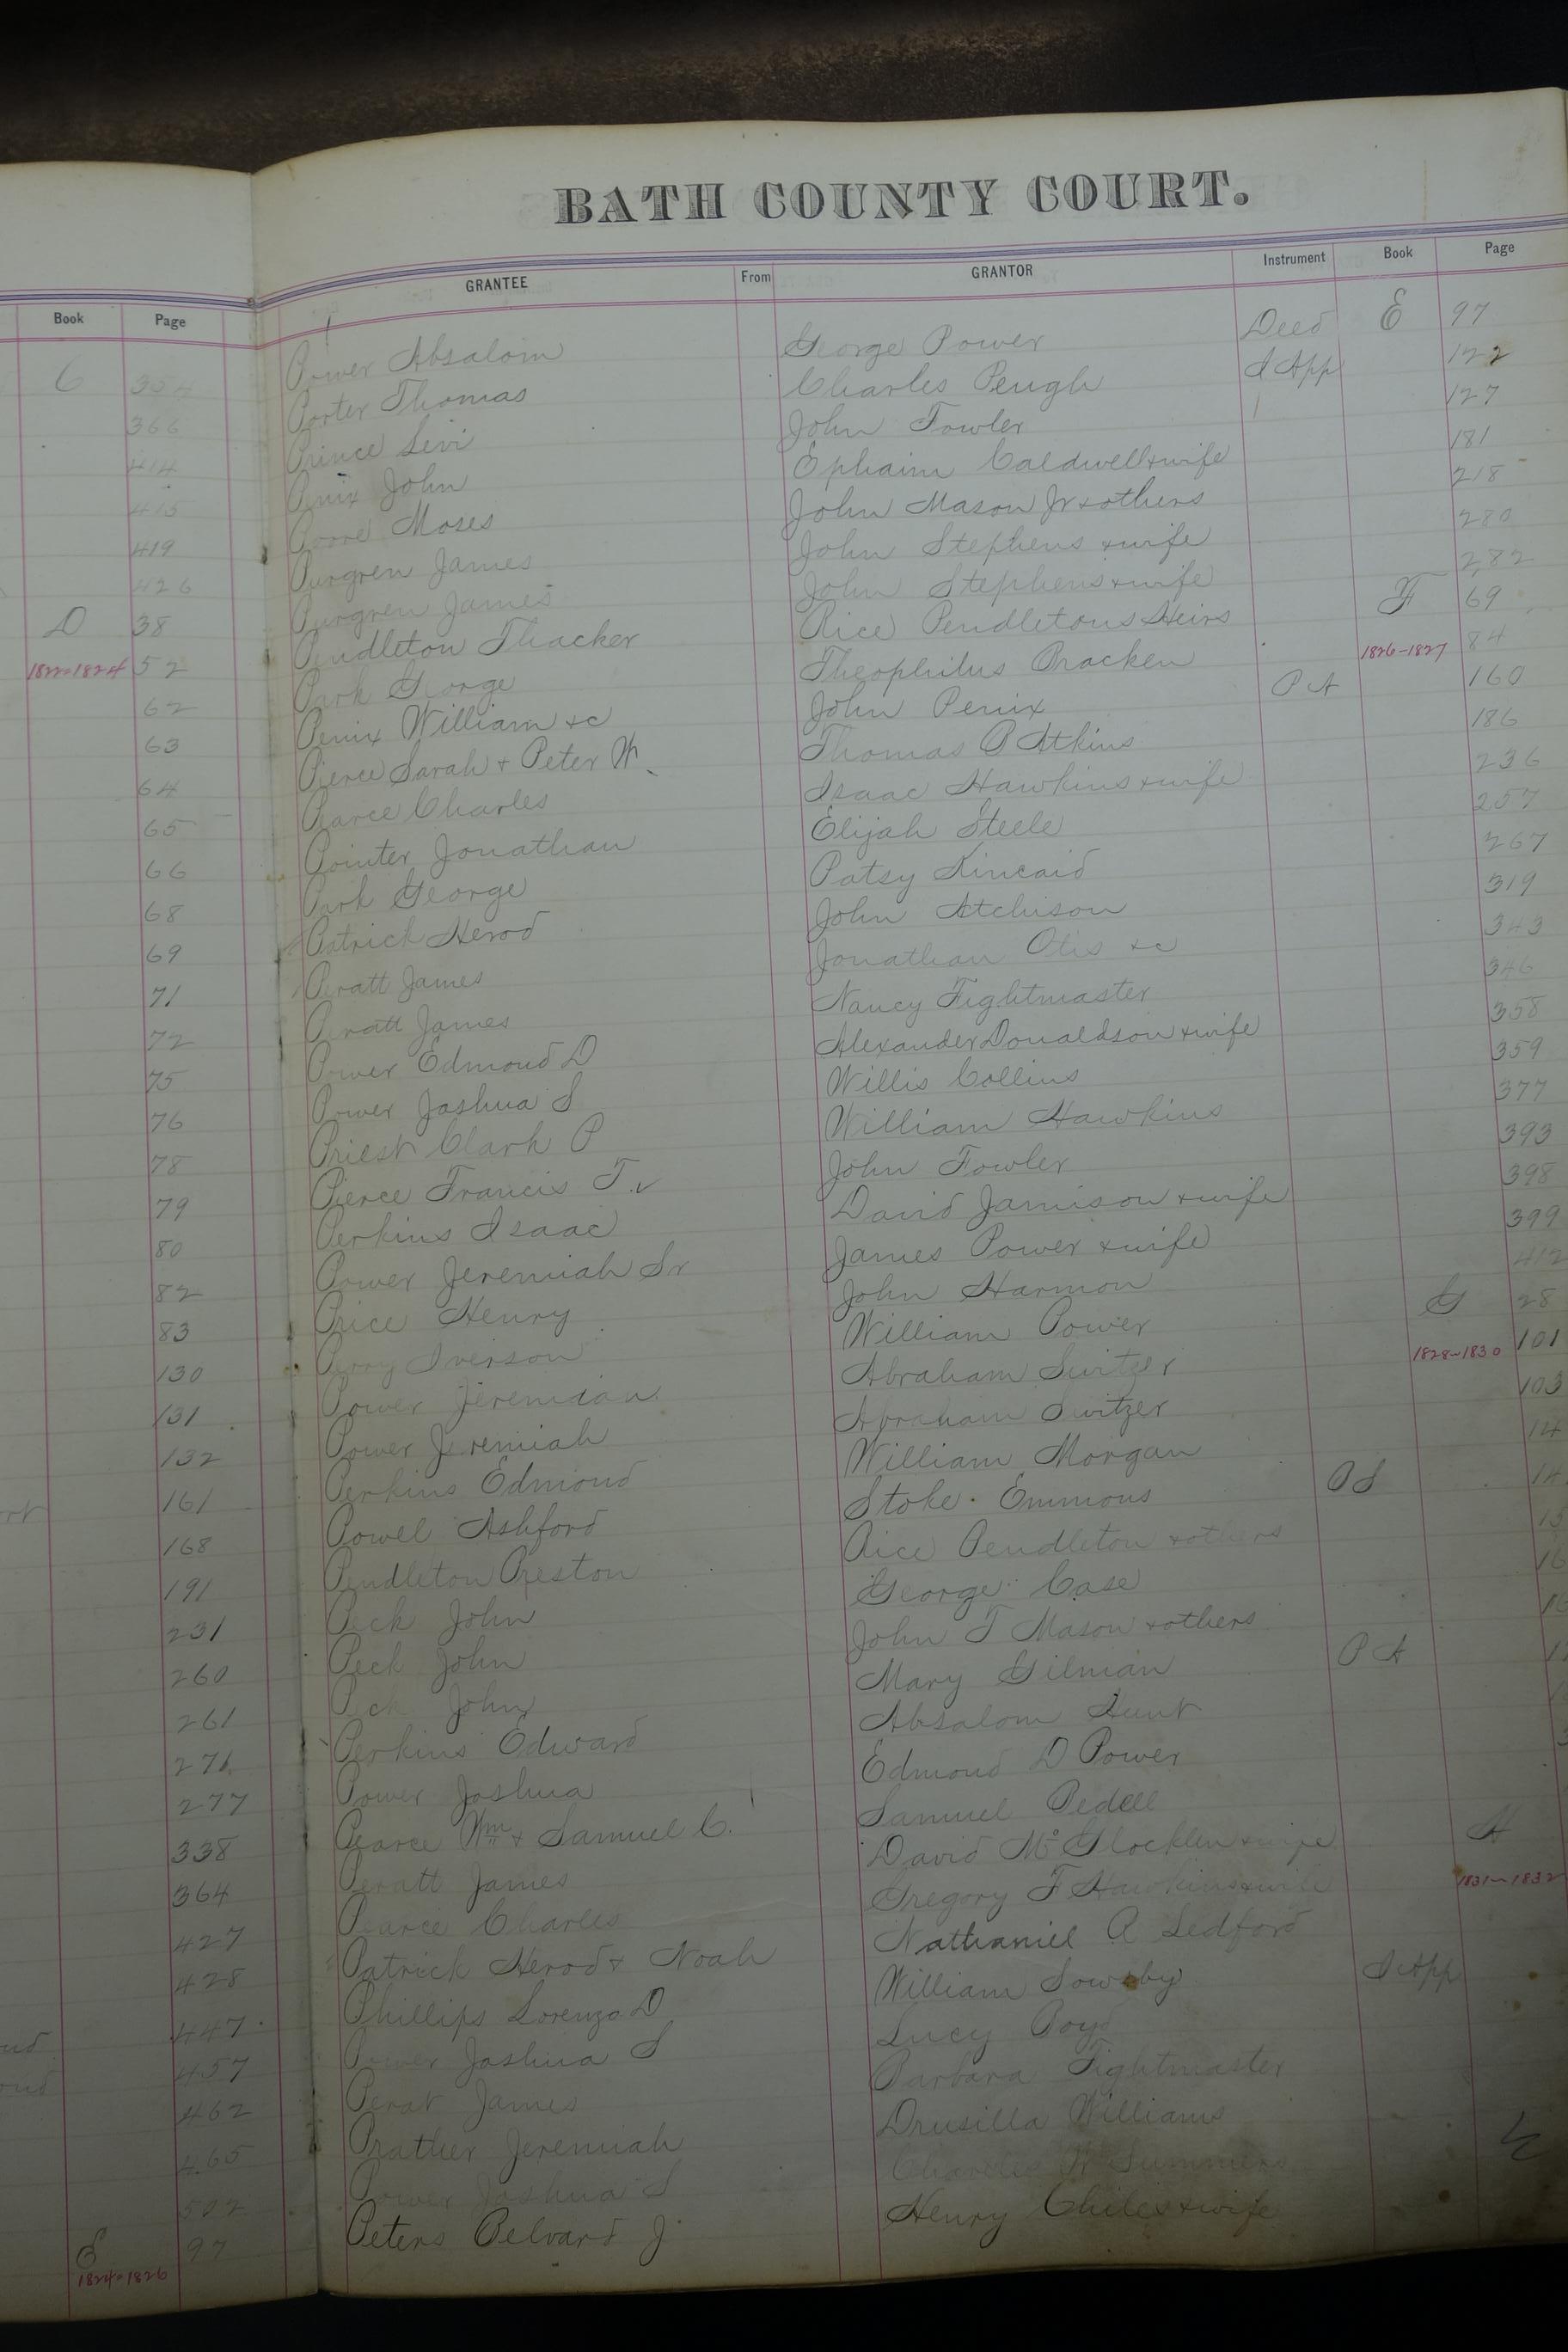 BATH COUNTY COURT.
Book Page
C 354
366
414
415
419
426
D 38
1822-1824 52
62
63
64
65
66
68
69
71
72
75
76
78
79
80
82
83
130
131
132
161
168
191
231
260
261
271
277
338
364
427
428
447
457
462
465
502
E 97
1824-1826
GRANTEE From GRANTOR Instrument Book Page
Power Absalom George Power Deed E 97
Porter Thomas Charles Peugh D App 122
Prince Levi John Fowler 127
Penix John Ephaim Caldwell & wife 181
Poore Moses John Mason Jr & others 218
Purgren James John Stephens & wife 280
Purgren James John Stephens & wife 282
Pendleton Thacker Rice Pendletons Heirs F 69
Park George Theophilus Bracken 1826-1827 84
Penix William &c John Penix P A 160
Pierce Sarah & Peter W. Thomas P Atkins 186
Pearce Charles Isaac Hawkins & wife 236
Pointer Jonathan Elijah Steele 257
Park George Patsy Kincaid 267
Patrick Herod John Atchison 319
Peratt James Jonathan Otis &c 343
Peratt James Nancy Fightmaster 346
Power Edmond D Alexander Donaldson & wife 358
Power Joshua S Willis Collins 359
Priest Clark P William Hawkins 377
Pierce Francis T. John Fowler 393
Perkins Isaac David Jamison & wife 398
Power Jeremiah Sr James Power & wife 399
Price Henry John Harmon 412
Perry Iverson William Power G 28
Power Jeremiah Abraham Switzer 1828-1830 101
Power Jeremiah Abraham Switzer 103
Perkins Edmond William Morgan 14
Powel Ashford Stoke Emmons P S 14
Pendleton Preston Rice Pendleton & others 15
Peck John George Case 16
Peck John John T Mason & others 16
Peck John Mary Gilman P A 17
Perkins Edward Absalom Hunt
Power Joshua Edmond D Power
Pearce Wm & Samuel C. Samuel Pedell
Peratt James David McGlocklen & wife H
Pearce Charles Gregory F Hawkins & wife 1831-1832
Patrick Herod & Noah Nathaniel A Ledford
Phillips Lorenzo D William Sowsby D App
Power Joshua S Lucy Boyd
Perat James Barbara Fightmaster
Prather Jeremiah Drusilla Williams
Power Joshua S Charles W Summers
Peters Belvard J Henry Chiles & wife